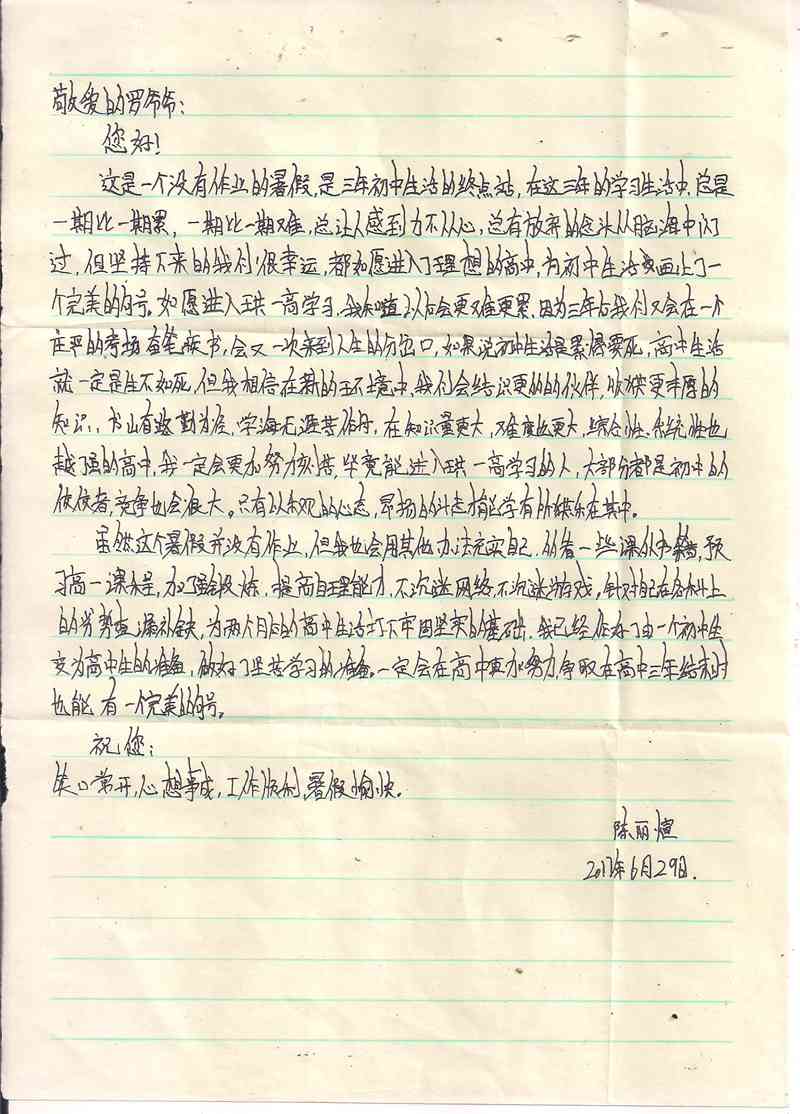 敬爱的罗爷爷：
您好！
这是一个没有作业的暑假，是三年初中生活的终点站，在这三年的学习生活中，总是
一期比一期累，一期比一期难，总让人感到力不从心，总有放弃的念头从脑海中闪
过，但坚持下来的我们很幸运，都如愿进入了理想的高中，为初中生活画上了一
个完美的句号。如愿进入珙一高学习，我知道以后会更难更累，因为三年后我们又会在一个
庄严的考场奋笔疾书，会又一次来到人生的分岔口，如果说初中生活是累得要死，高中生活
就一定是生不如死，但我相信在新的环境中，我们会结识更的的伙伴，收获更丰厚的
知识，书山有路勤为径，学海无涯苦作舟，在知识量更大，难度也更大，综合性、系统性也
越了强的高中，我一定会更加努力刻苦，毕竟能进入珙一高学习的人，大部分都是初中的
佼佼者，竞争也会很大。只有以乐观的心态，昂扬的斗志才能学有所获乐在其中。
虽然这个暑假并没有作业，但我也会用其他办法充实自己，多看一些课外书籍，预
习高一课程，加强锻炼，提高自理能力，不沉迷网络，不沉迷游戏，针对自己在各科上
的劣势查漏补缺，为两个月后的高中生活打下牢固坚实的基础，我已经作好了由一个初中生
变为高中生的准备，做好了坚苦学习的准备。一定会在高中更加努力，争取在高中三年结束时
也能有一个完美的句号。
祝您：
笑口常开，心想事成，工作顺利，暑假愉快。
陈丽煊
2017年6月29日.